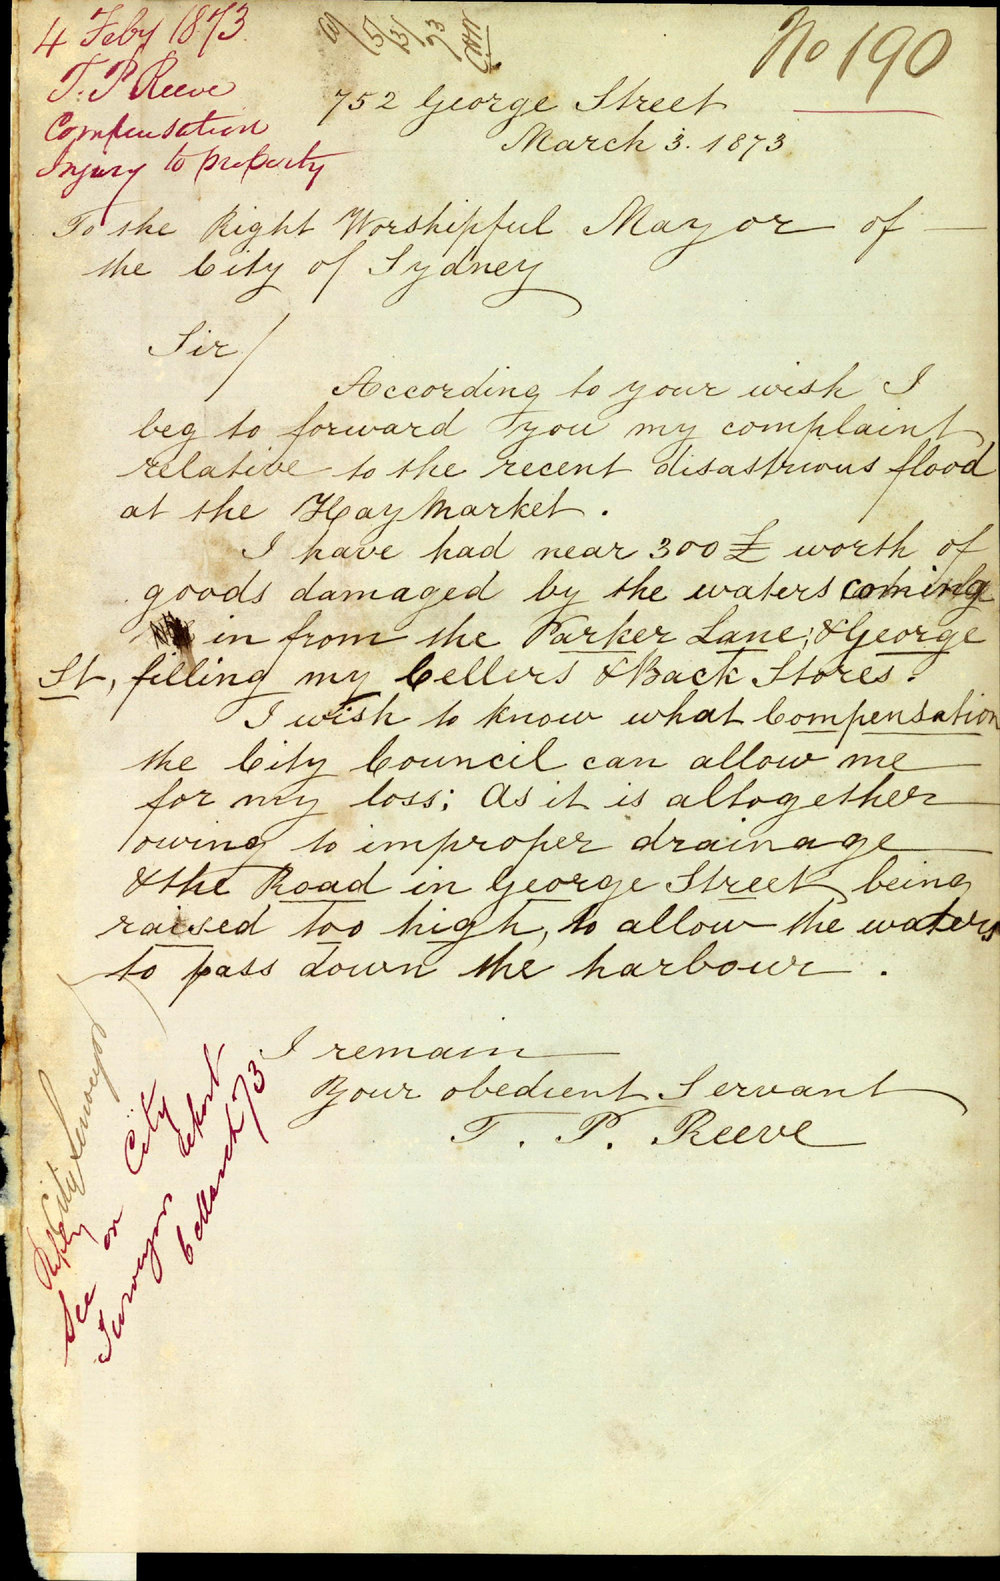 4 Feby 1873
T. P Reeve
Compensation
Injury to property
No 190
752 George Street
March 3. 1873
To the Right Worshipful Mayor of
the City of Sydney
Sir/
According to your wish I
beg to forward you my complaint
relative to the recent disastrious flood
at the HayMarket.
I have had near 300 £ worth of
goods damaged by the waters coming
in from the Parker Lane; & George
St, filling my Cellers & Back Stores.
I wish to know what Compensation
the City Council can allow me
for my loss; As it is altogether
owing to improper drainage
& the Road in George Street being
raised too high, to allow the waters
to pass down the harbour.
I remain
Your obedient Servant
T. P. Reeve
City Surveyor
See on City
Surveyors report
March 73